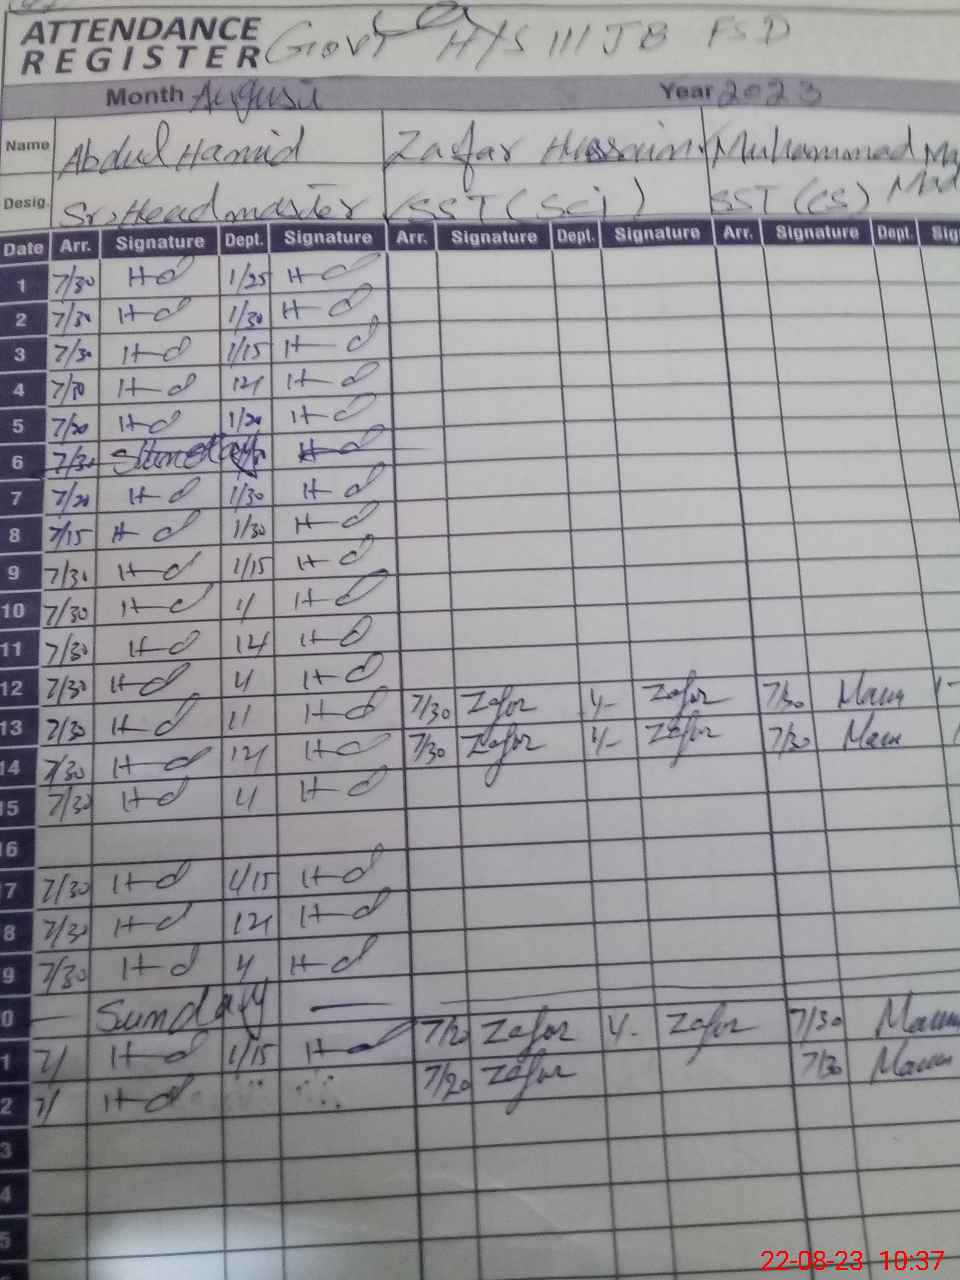 ATTENDANCE REGISTER Govt H/S 111 JB FSD
Month August Year 2023
Name Abdul Hamid Zafar Hussain Muhammad
Desig. Sr. Headmaster SST (Sci) SST (CS)
Date Arr. Signature Dept. Signature Arr. Signature Dept. Signature Arr. Signature Dept. Sig
1 7/30 H d 1/25 H d
2 7/30 H d 1/30 H d
3 7/30 H d 1/15 H d
4 7/10 H d 12/ H d
5 7/20 H d 1/20 H d
6 7/30 Sunday H d
7 7/20 H d 1/30 H d
8 7/15 H d 1/30 H d
9 7/30 H d 1/15 H d
10 7/30 H d 1/ H d
11 7/30 H d 12/ H d
12 7/30 H d 1/ H d 7/30 Zafar 1/- Zafar 7/30
13 7/30 H d 1/ H d 7/30 Zafar 1/- Zafar 7/30
14 7/30 H d 12/ H d
15 7/30 H d 1/ H d
16
7 7/30 H d 1/15 H d
8 7/30 H d 12/ H d
9 7/30 H d 1/ H d
0 — Sunday —
1 7/ H d 1/15 H d 7/20 Zafar 1/- Zafar 7/30
2 7/ H d 7/20 Zafar 7/30
3
4
5
22-08-23 10:37